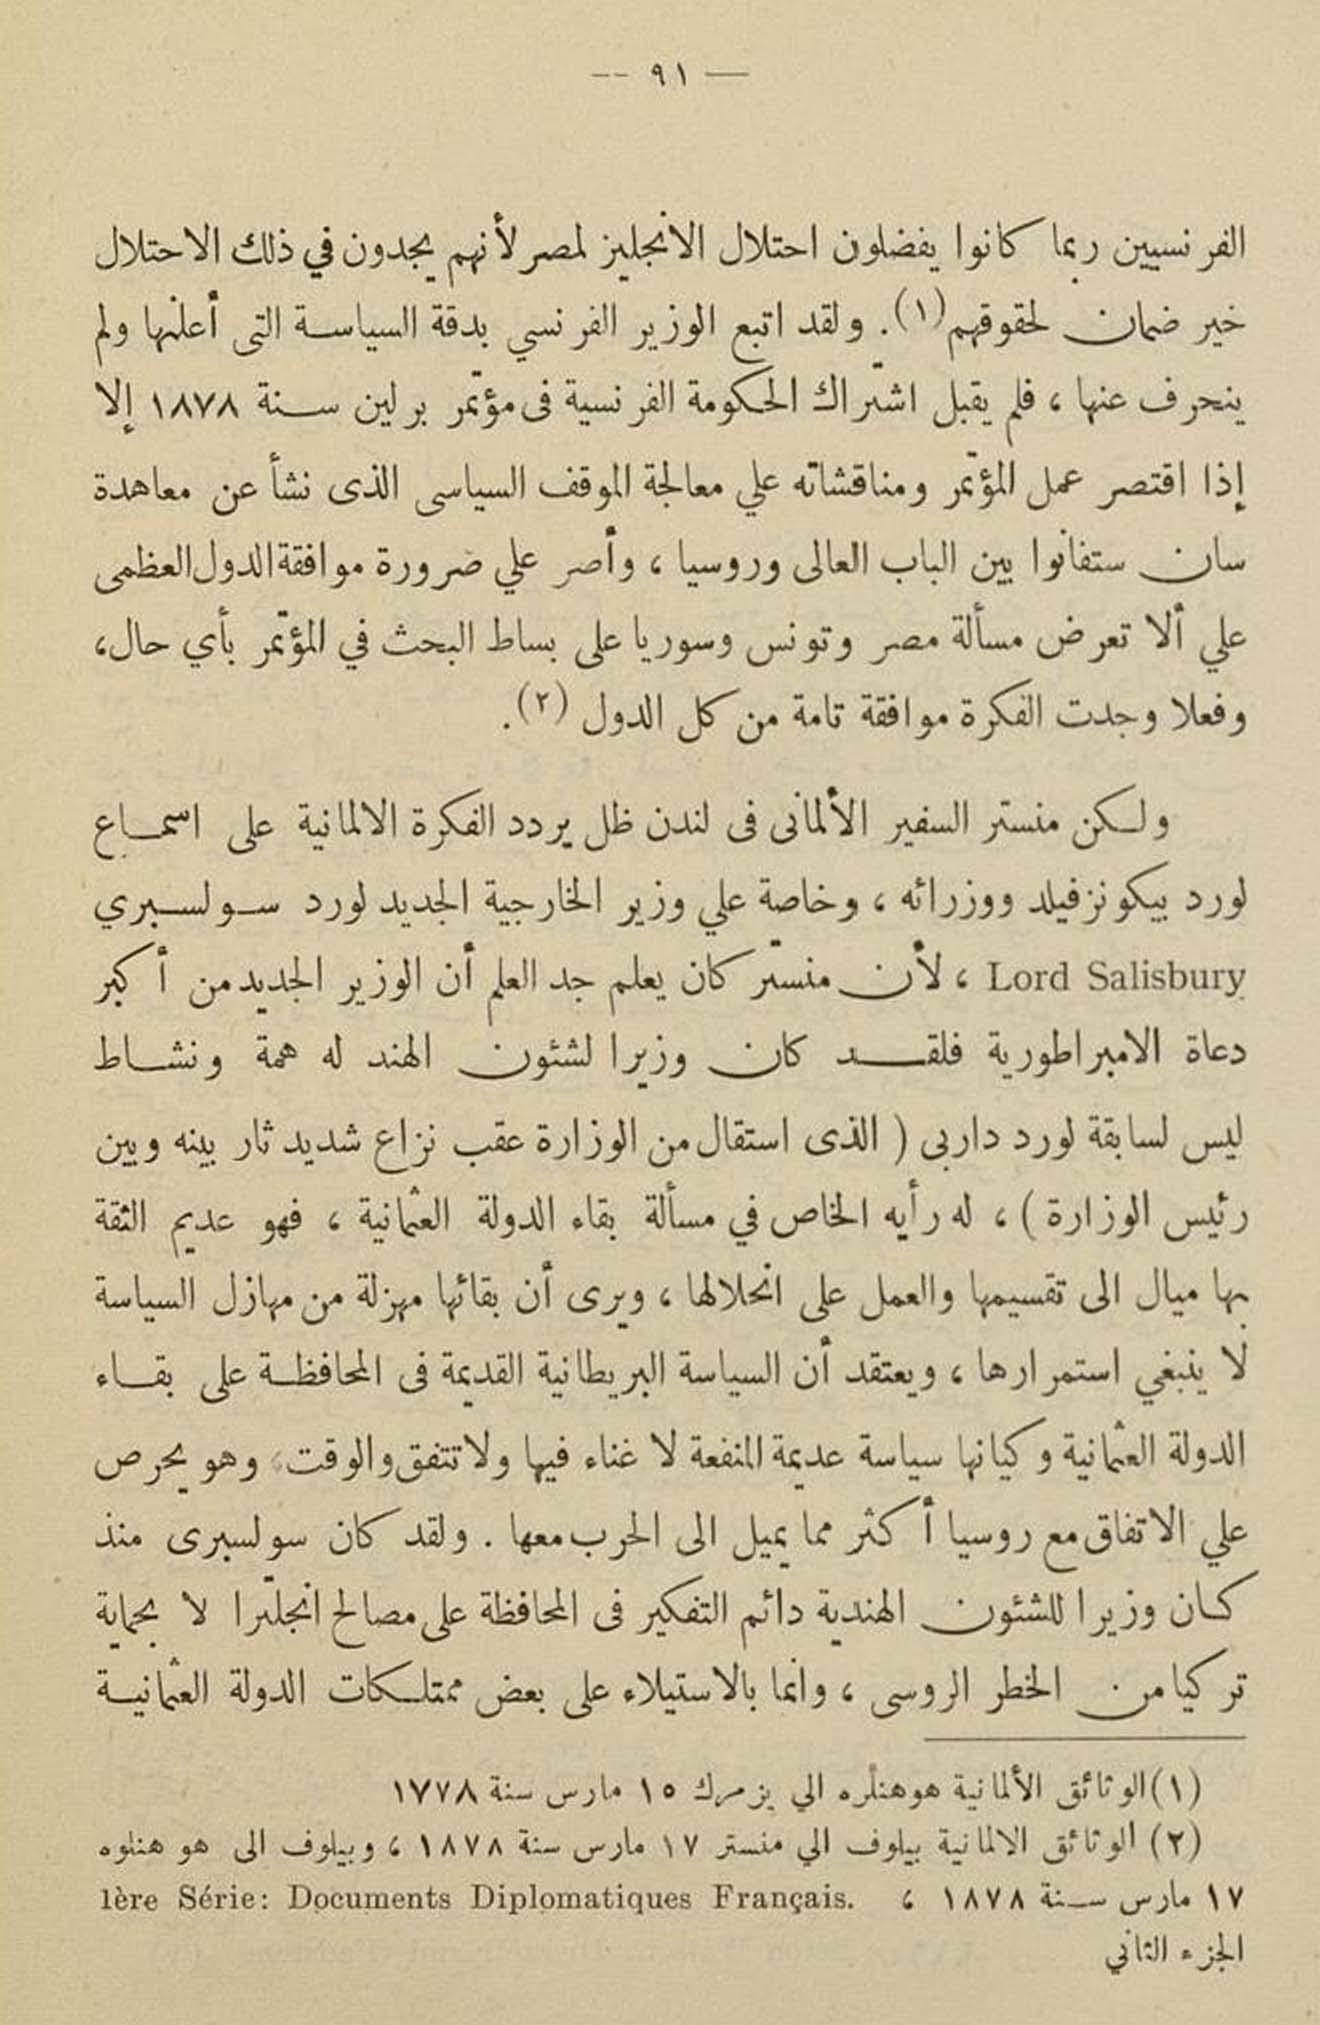 — ٩١ —
الفرنسيين ربما كانوا يفضلون احتلال الانجليز لمصر لأنهم يجدون في ذلك الاحتلال
خير ضمان لحقوقهم (١). ولقد اتبع الوزير الفرنسي بدقة السياسة التى أعلنها ولم
ينحرف عنها ، فلم يقبل اشتراك الحكومة الفرنسية فى مؤتمر برلين سنة ١٨٧٨ إلا
إذا اقتصر عمل المؤتمر ومناقشاته علي معالجة الموقف السياسى الذى نشأ عن معاهدة
سان ستفانوا بين الباب العالى وروسيا ، وأصر علي ضرورة موافقة الدول العظمى
علي ألا تعرض مسألة مصر وتونس وسوريا على بساط البحث في المؤتمر بأي حال،
وفعلا وجدت الفكرة موافقة تامة من كل الدول (٢).
ولكن منستر السفير الألمانى فى لندن ظل يردد الفكرة الالمانية على اسماع
لورد بيكونزفيلد ووزرائه ، وخاصة علي وزير الخارجية الجديد لورد سولسبري
Lord Salisbury ، لأن منستر كان يعلم جد العلم أن الوزير الجديد من أكبر
دعاة الامبراطورية فلقد كان وزيرا لشئون الهند له همة ونشاط
ليس لسابقة لورد داربى ( الذى استقال من الوزارة عقب نزاع شديد ثار بينه وبين
رئيس الوزارة ) ، له رأيه الخاص في مسألة بقاء الدولة العثمانية ، فهو عديم الثقة
بها ميال الى تقسيمها والعمل على انحلالها ، ويرى أن بقائها مهزلة من مهازل السياسة
لا ينبغي استمرارها ، ويعتقد أن السياسة البريطانية القديمة فى المحافظة على بقاء
الدولة العثمانية وكيانها سياسة عديمة المنفعة لا غناء فيها ولا تتفق والوقت، وهو يحرص
علي الاتفاق مع روسيا أكثر مما يميل الى الحرب معها . ولقد كان سولسبرى منذ
كان وزيرا للشئون الهندية دائم التفكير فى المحافظة على مصالح انجلترا لا بحماية
تركيا من الخطر الروسى ، وانما بالاستيلاء على بعض ممتلكات الدولة العثمانية
(١) الوثائق الألمانية هوهنلره الي بزمرك ١٥ مارس سنة ١٧٧٨
(٢) الوثائق الالمانية بيلوف الي منستر ١٧ مارس سنة ١٨٧٨ ، وبيلوف الى هو هنلوه
١٧ مارس سنة ١٨٧٨ ، 1ère Série: Documents Diplomatiques Français.
الجزء الثاني